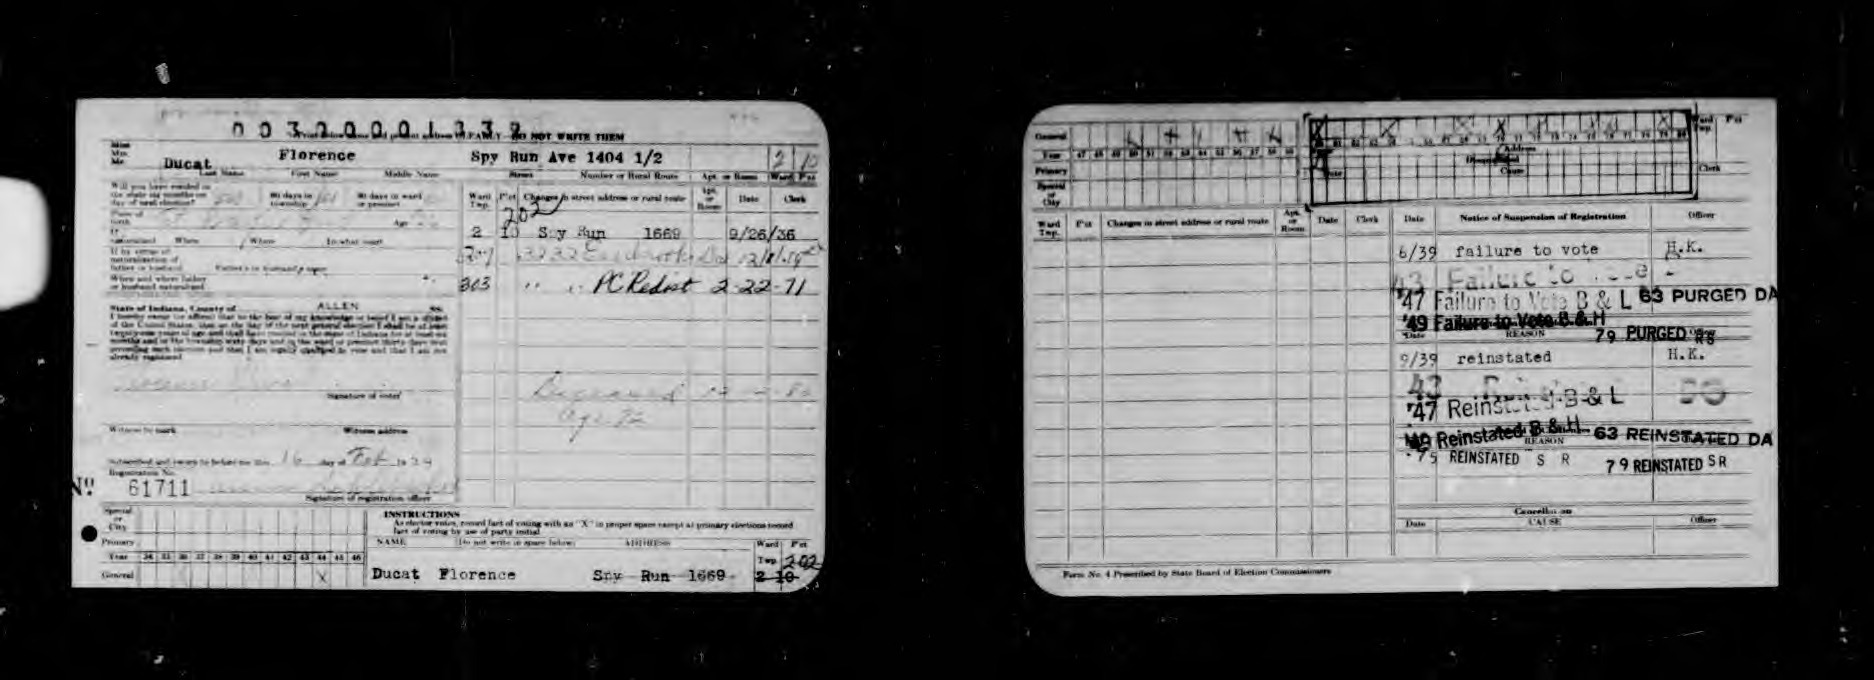 0032000 1 3 3 2
DO NOT WRITE THEM
Miss
Mrs.
Mr.
Ducat Florence Spy Run Ave 1404 1/2 2 10
Last Name First Name Middle Name Street Number or Rural Route Apt. or Room Ward P'ct
Will you have resided in
the state six months on
day of next election? 60 days in
township 30 days in ward
or precinct
Ward
Twp. P'ct Changes in street address or rural route Apt.
or
Room Date Clerk
Place of
birth Age
202
2 10 Spy Run 1669 9/26/36
If
naturalized When Where In what court
If by virtue of
naturalization of
father or husband
207 3232
When and where father
or husband naturalized
303 " " PC Redist 2-22-71
State of Indiana, County of ALLEN SS.
I hereby swear (or affirm) that to the best of my knowledge or belief I am a citizen
of the United States, that on the day of the next general election I shall be at least
twenty-one years of age and shall have resided in the state of Indiana for at least six
months and in the township sixty days and in the ward or precinct thirty days next
preceding such election and that I am legally qualified to vote and that I am not
already registered
Florence
Signature of voter
Deceased
age 72
Witness to mark Witness address
Subscribed and sworn to before me this 16 day of Feb 19 34
Registration No.
No 61711
Signature of registration officer
Special
or
City
Primary
Year 34 35 36 37 38 39 40 41 42 43 44 45 46
General X
INSTRUCTIONS
As elector votes, record fact of voting with an "X" in proper space except at primary elections record
fact of voting by use of party initial
NAME (Do not write in space below) ADDRESS Ward P'ct
Twp. 202
Ducat Florence Spy Run 1669 2 10
General
Year 47 48 49 50 51 52 53 54 55 56 57 58 59
Primary
Special
or
City
Address
Date Cause
Ward
Twp. P'ct
Clerk
Ward
Twp. P'ct Changes in street address or rural route Apt.
or
Room Date Clerk Date Notice of Suspension of Registration Officer
6/39 failure to vote H.K.
43 Failure to Vote
'47 Failure to Vote B & L 63 PURGED DA
'49 Failure to Vote B & H
Date REASON 79 PURGED RS
9/39 reinstated H.K.
43
'47 Reinstated B & L
Reinstated B & H 63 REINSTATED DA
REASON
'75 REINSTATED S R 79 REINSTATED SR
Cancellation
Date CAUSE Officer
Form No. 4 Prescribed by State Board of Election Commissioners